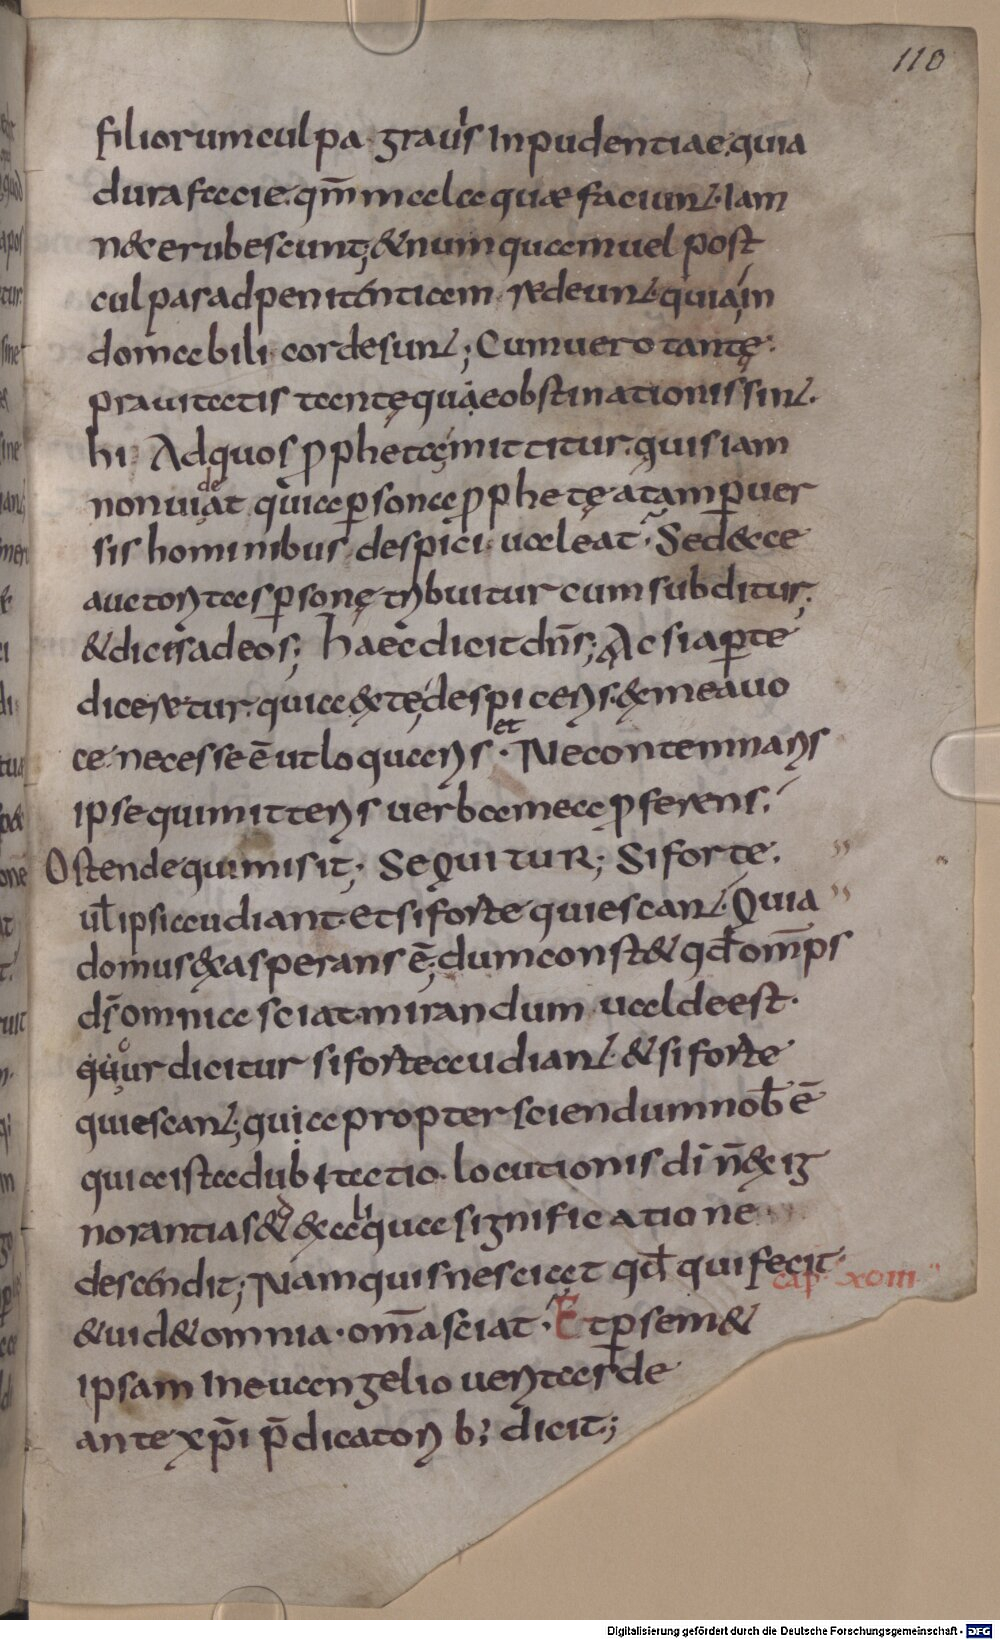 110
filiorum culpa · grauis Inpudentiae · quia
dura facie · qm̄ mala quæ faciunt · Iam
n& erubescunt; & numquam uel post
culpas ad penitentiam redeunt · quia in
domabili cordesunt; Cum uero tantę
prauitatis tantę quae obstinationis sint ·
hi · Ad quos ꝓphetę mittitur · quis iam
non uideat quia ꝑsona ꝓphetę a tam ꝑuer
sis hominibus despici ualeat · Sed ecce
auctoritas ꝑsonę tribuitur cum subditur;
& dicis ad eos; haec dicit dn̄s; Ac si aꝑte
dicer&ur · quia & te despiciens · & mea uo
ce necesse ē ut loquaris · et Ne contemnaris
ipse qui mitteris uerba mea ꝓferens ·
Ostende qui misit; SEQUITUR; Si forte ·
ul̄ ipsi audiant · Et si forte quiescant · Quia
domus exasperans ē; dum const& qđ om̄ps
ds̄ omnia sciat · mirandum ualde est ·
quur dicitur si forte audiant · & si forte
quiescant; quia propter sciendum nob̄ ē
quia ista dubitatio locutionis dī n̄ ex ig
norantia sed ex aliqua significatione
descendit; Nam quis nesciat qđ qui fecit
cap xoiii
& uid& omnia · om̄a sciat · Et ꝑ sem&
ipsam In euangelio ueritas de
ante xp̄i p̄dicatorib; dicit;
Digitalisierung gefördert durch die Deutsche Forschungsgemeinschaft - DFG